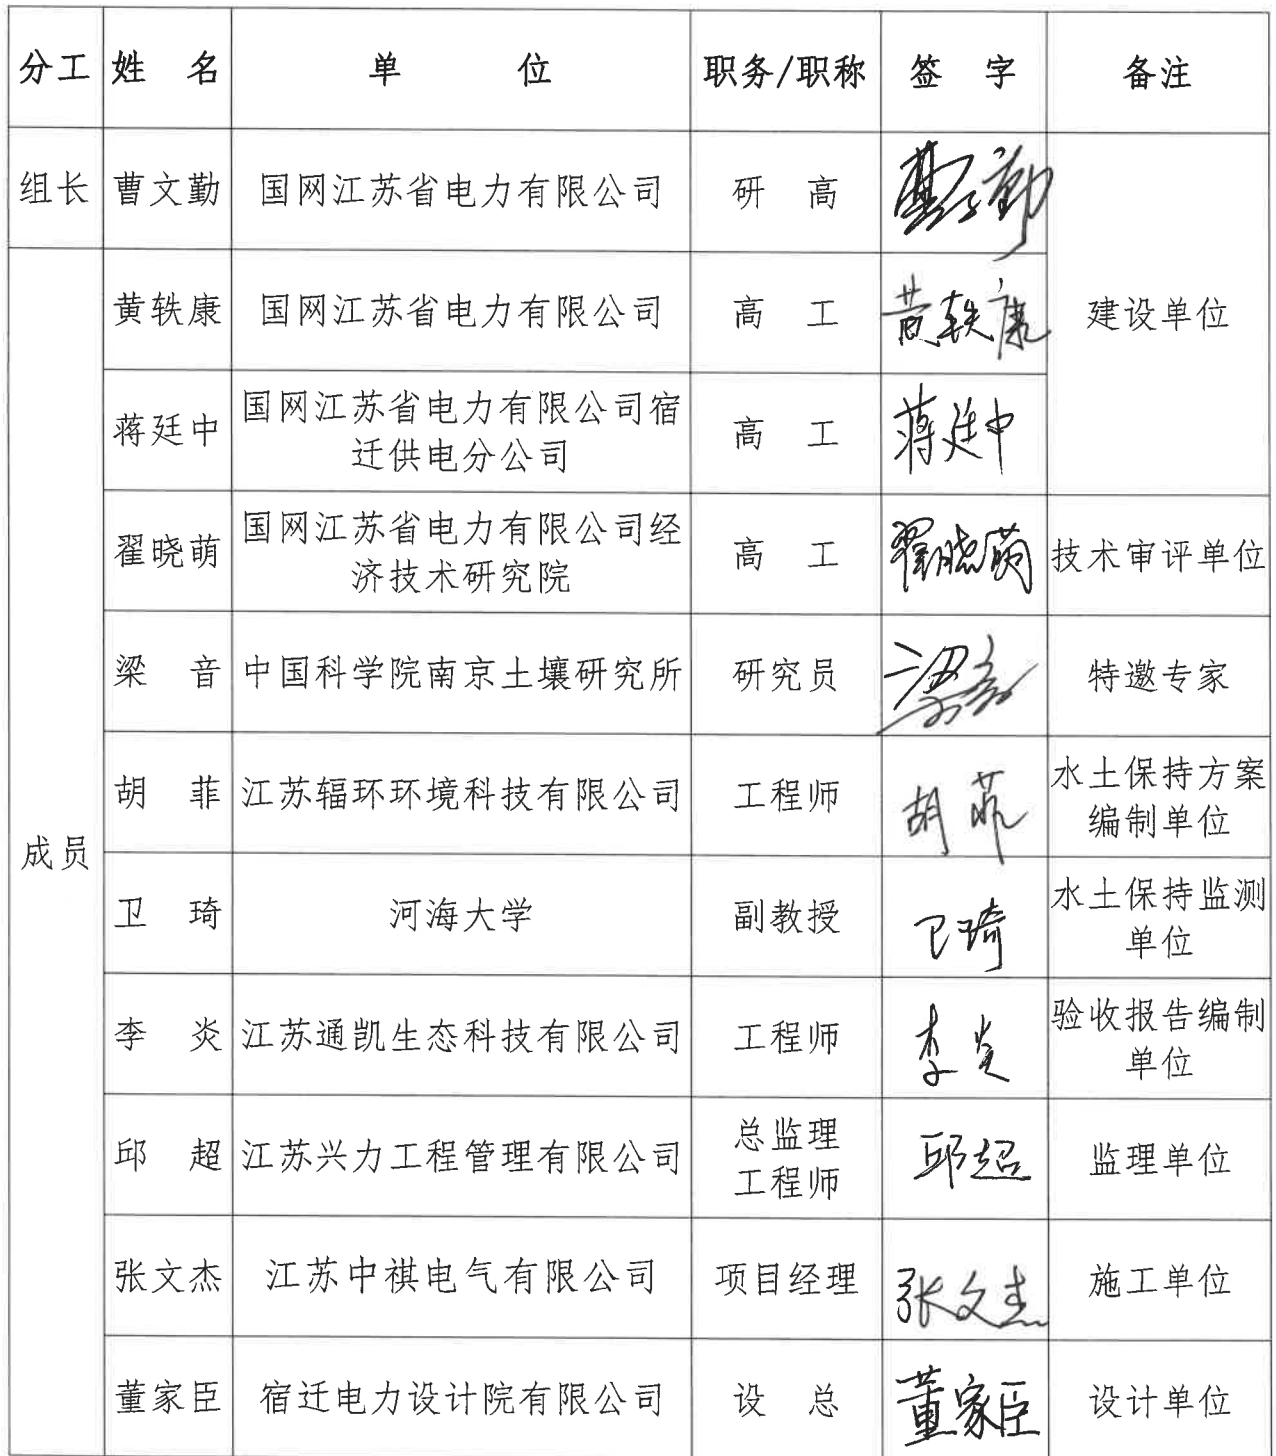 分工 姓 名 单 位 职务/职称 签 字 备注
组长 曹文勤 国网江苏省电力有限公司 研 高 曹文勤
黄轶康 国网江苏省电力有限公司 高 工 黄轶康 建设单位
蒋廷中 国网江苏省电力有限公司宿
迁供电分公司 高 工 蒋廷中
翟晓萌 国网江苏省电力有限公司经
济技术研究院 高 工 翟晓萌 技术审评单位
梁 音 中国科学院南京土壤研究所 研究员 梁音 特邀专家
胡 菲 江苏辐环环境科技有限公司 工程师 胡菲 水土保持方案
编制单位
成员
卫 琦 河海大学 副教授 卫琦 水土保持监测
单位
李 炎 江苏通凯生态科技有限公司 工程师 李炎 验收报告编制
单位
邱 超 江苏兴力工程管理有限公司 总监理
工程师 邱超 监理单位
张文杰 江苏中祺电气有限公司 项目经理 张文杰 施工单位
董家臣 宿迁电力设计院有限公司 设 总 董家臣 设计单位